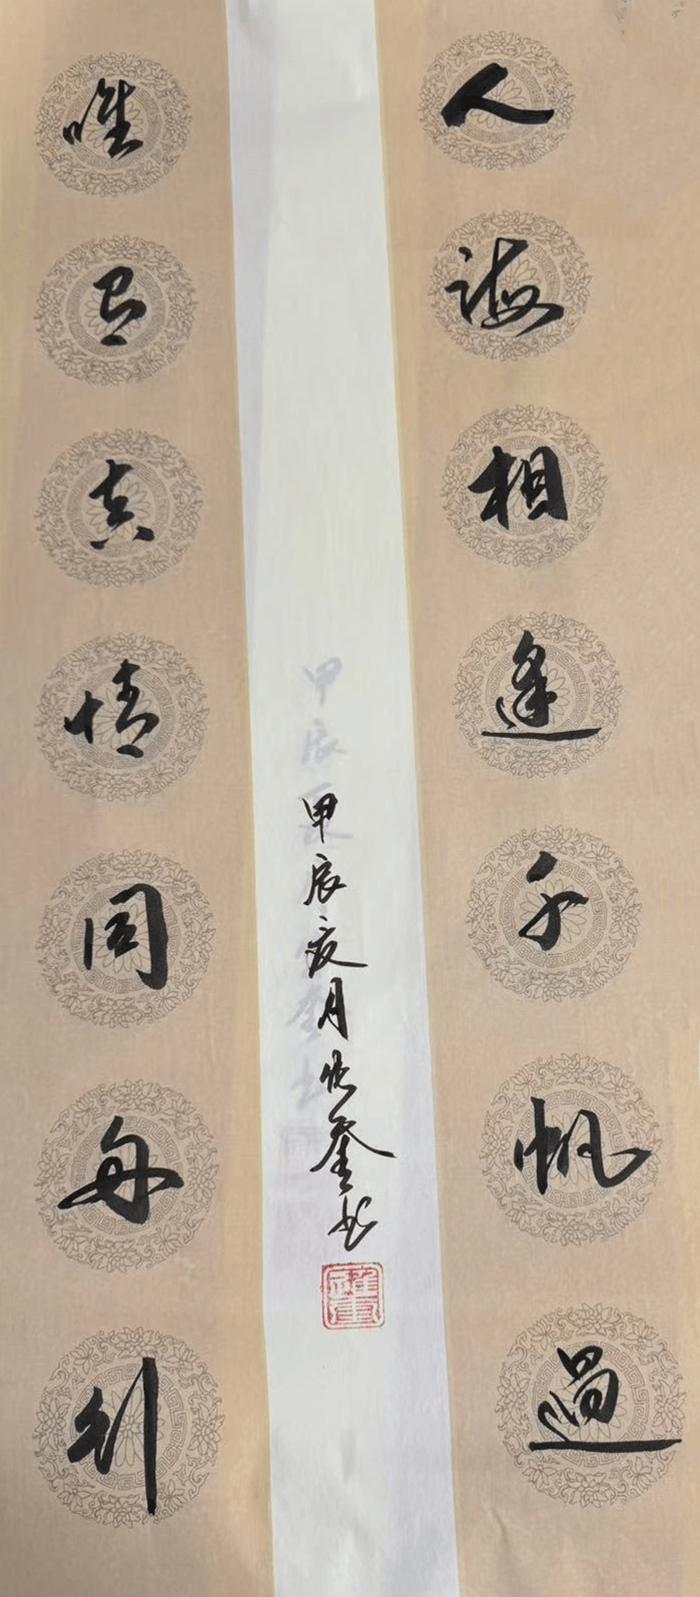 人海相逢千帆過
唯真情同舟到
甲辰夏月奎书